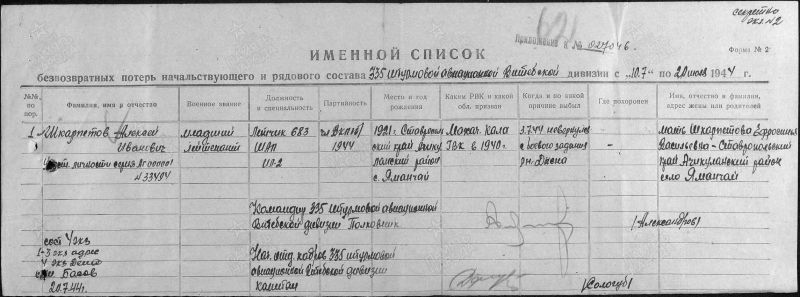 секретно
экз. №2
Приложение к № 027046.
ИМЕННОЙ СПИСОК
Форма № 2
безвозвратных потерь начальствующего и рядового состава 335 штурмовой авиационной Витебской дивизии с „10.7" по 20 июля 1944 г.
№№ по пор.
Фамилия, имя и отчество
Военное звание
Должность и специальность
Партийность
Место и год рождения
Каким РВК и какой обл. призван
Когда и по какой причине выбыл
Где похоронен
Имя, отчество и фамилия, адрес жены или родителей
1 Шкарпетов Алексей Иванович
младший лейтенант
Летчик 683 ШАП ИЛ-2
чл ВКП(б) 1944
1921 г. Ставропольский край Ачикулакский район с. Яманчай
Махач. Кала ГВК в 1940 г.
3.7.44 не вернулся с боевого задания рн. Дисна
-
мать Шкарпетова Ефросинья Васильевна - Ставропольский край Ачикулакский район село Яманчай
удост. личности серия № 00000 1
N 33404
Командир 335 штурмовой авиационной
Витебской дивизии Полковник
/Александров/
Нач. отд. кадров 335 штурмовой
авиационной Витебской дивизии
капитан
/Сологуб/
сост 4 экз
1-3 экз адрес
4 экз
исп Басов
20.7.44 г.